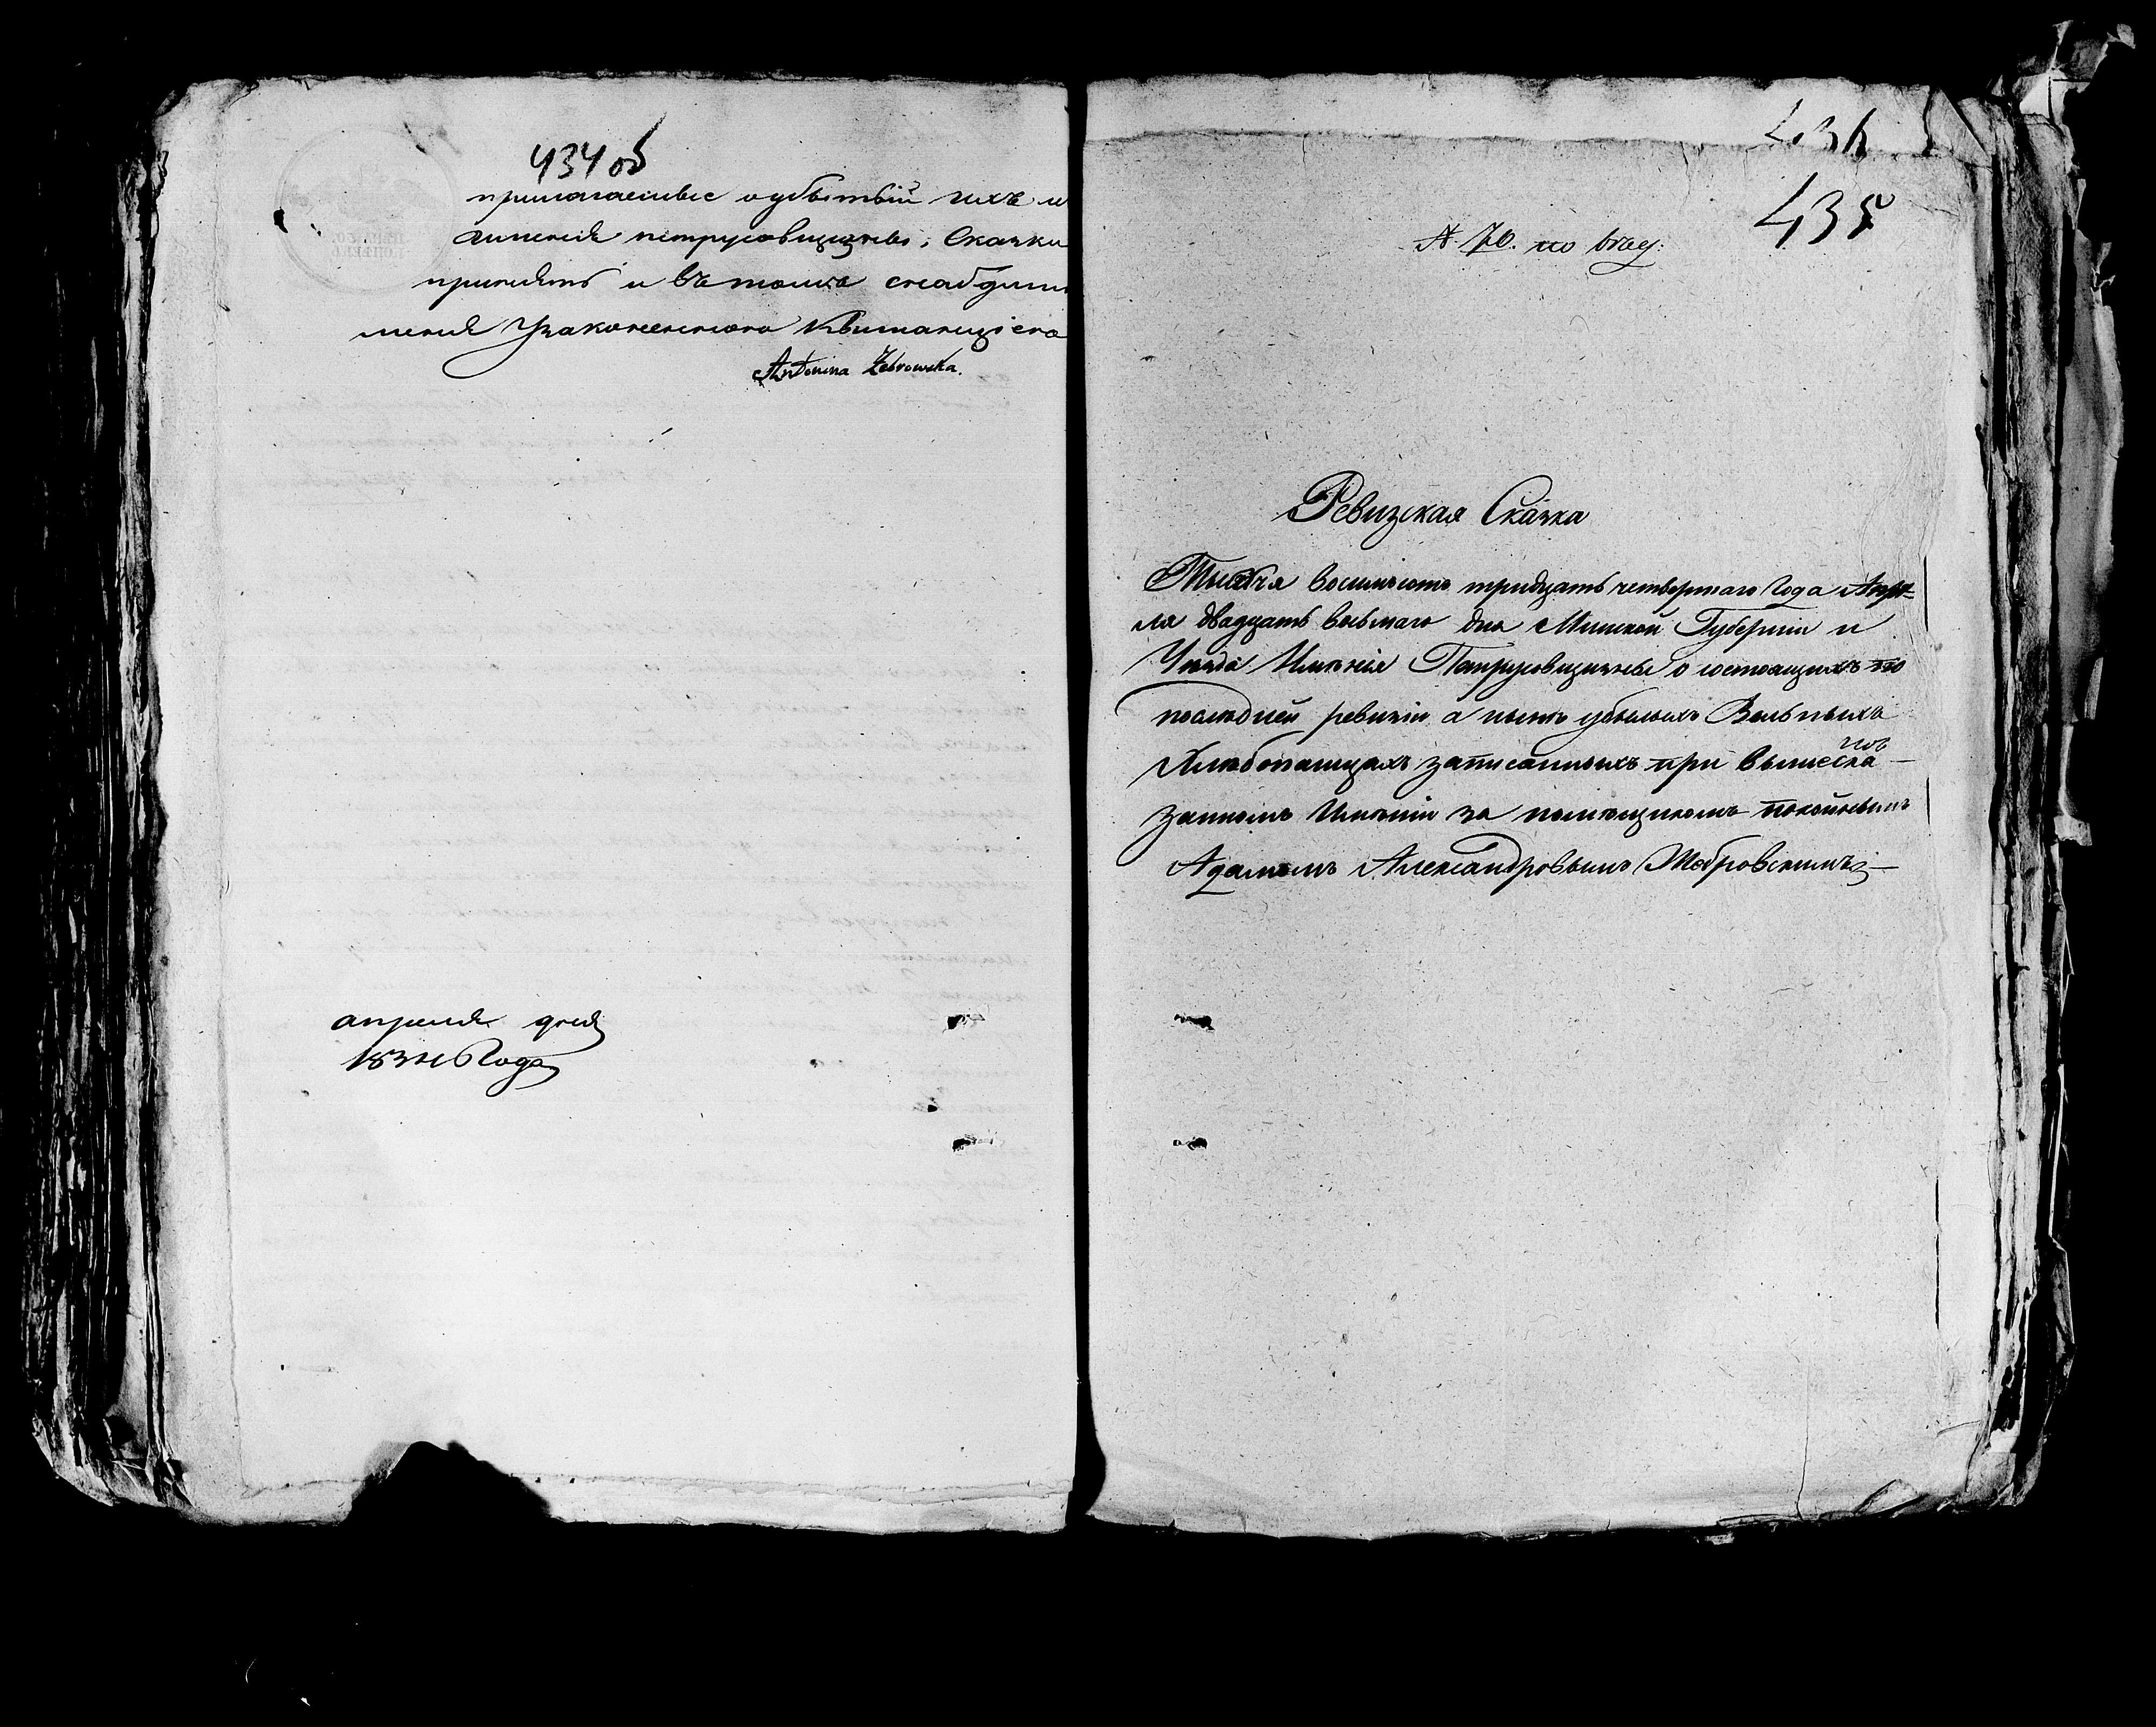 434 об
прилагаемые о убытвіи ихъ и
Имения петрусовщизны, Скаски
принять и въ томъ снабдить
меня Узаконенною Квитанціею
Antonina Żebrowska.
апреля дня
1834 Года
435
№ 70. по
Ревизская Скаска
Тысяча восимьсотъ тридцать четвертаго Года Апре-
ля двадцать восьмаго дня Минской Губерніи и
Уезда Имѣнія Петрусовщизны о состоящихъ по
последней ревизіи а нынѣ убылыхъ Вольныхъ
Хлебопашцахъ записанныхъ при вышеска-
занномъ Имѣніи за помѣщикомъ покойнымъ
Адамомъ Александровымъ Жебровскимъ